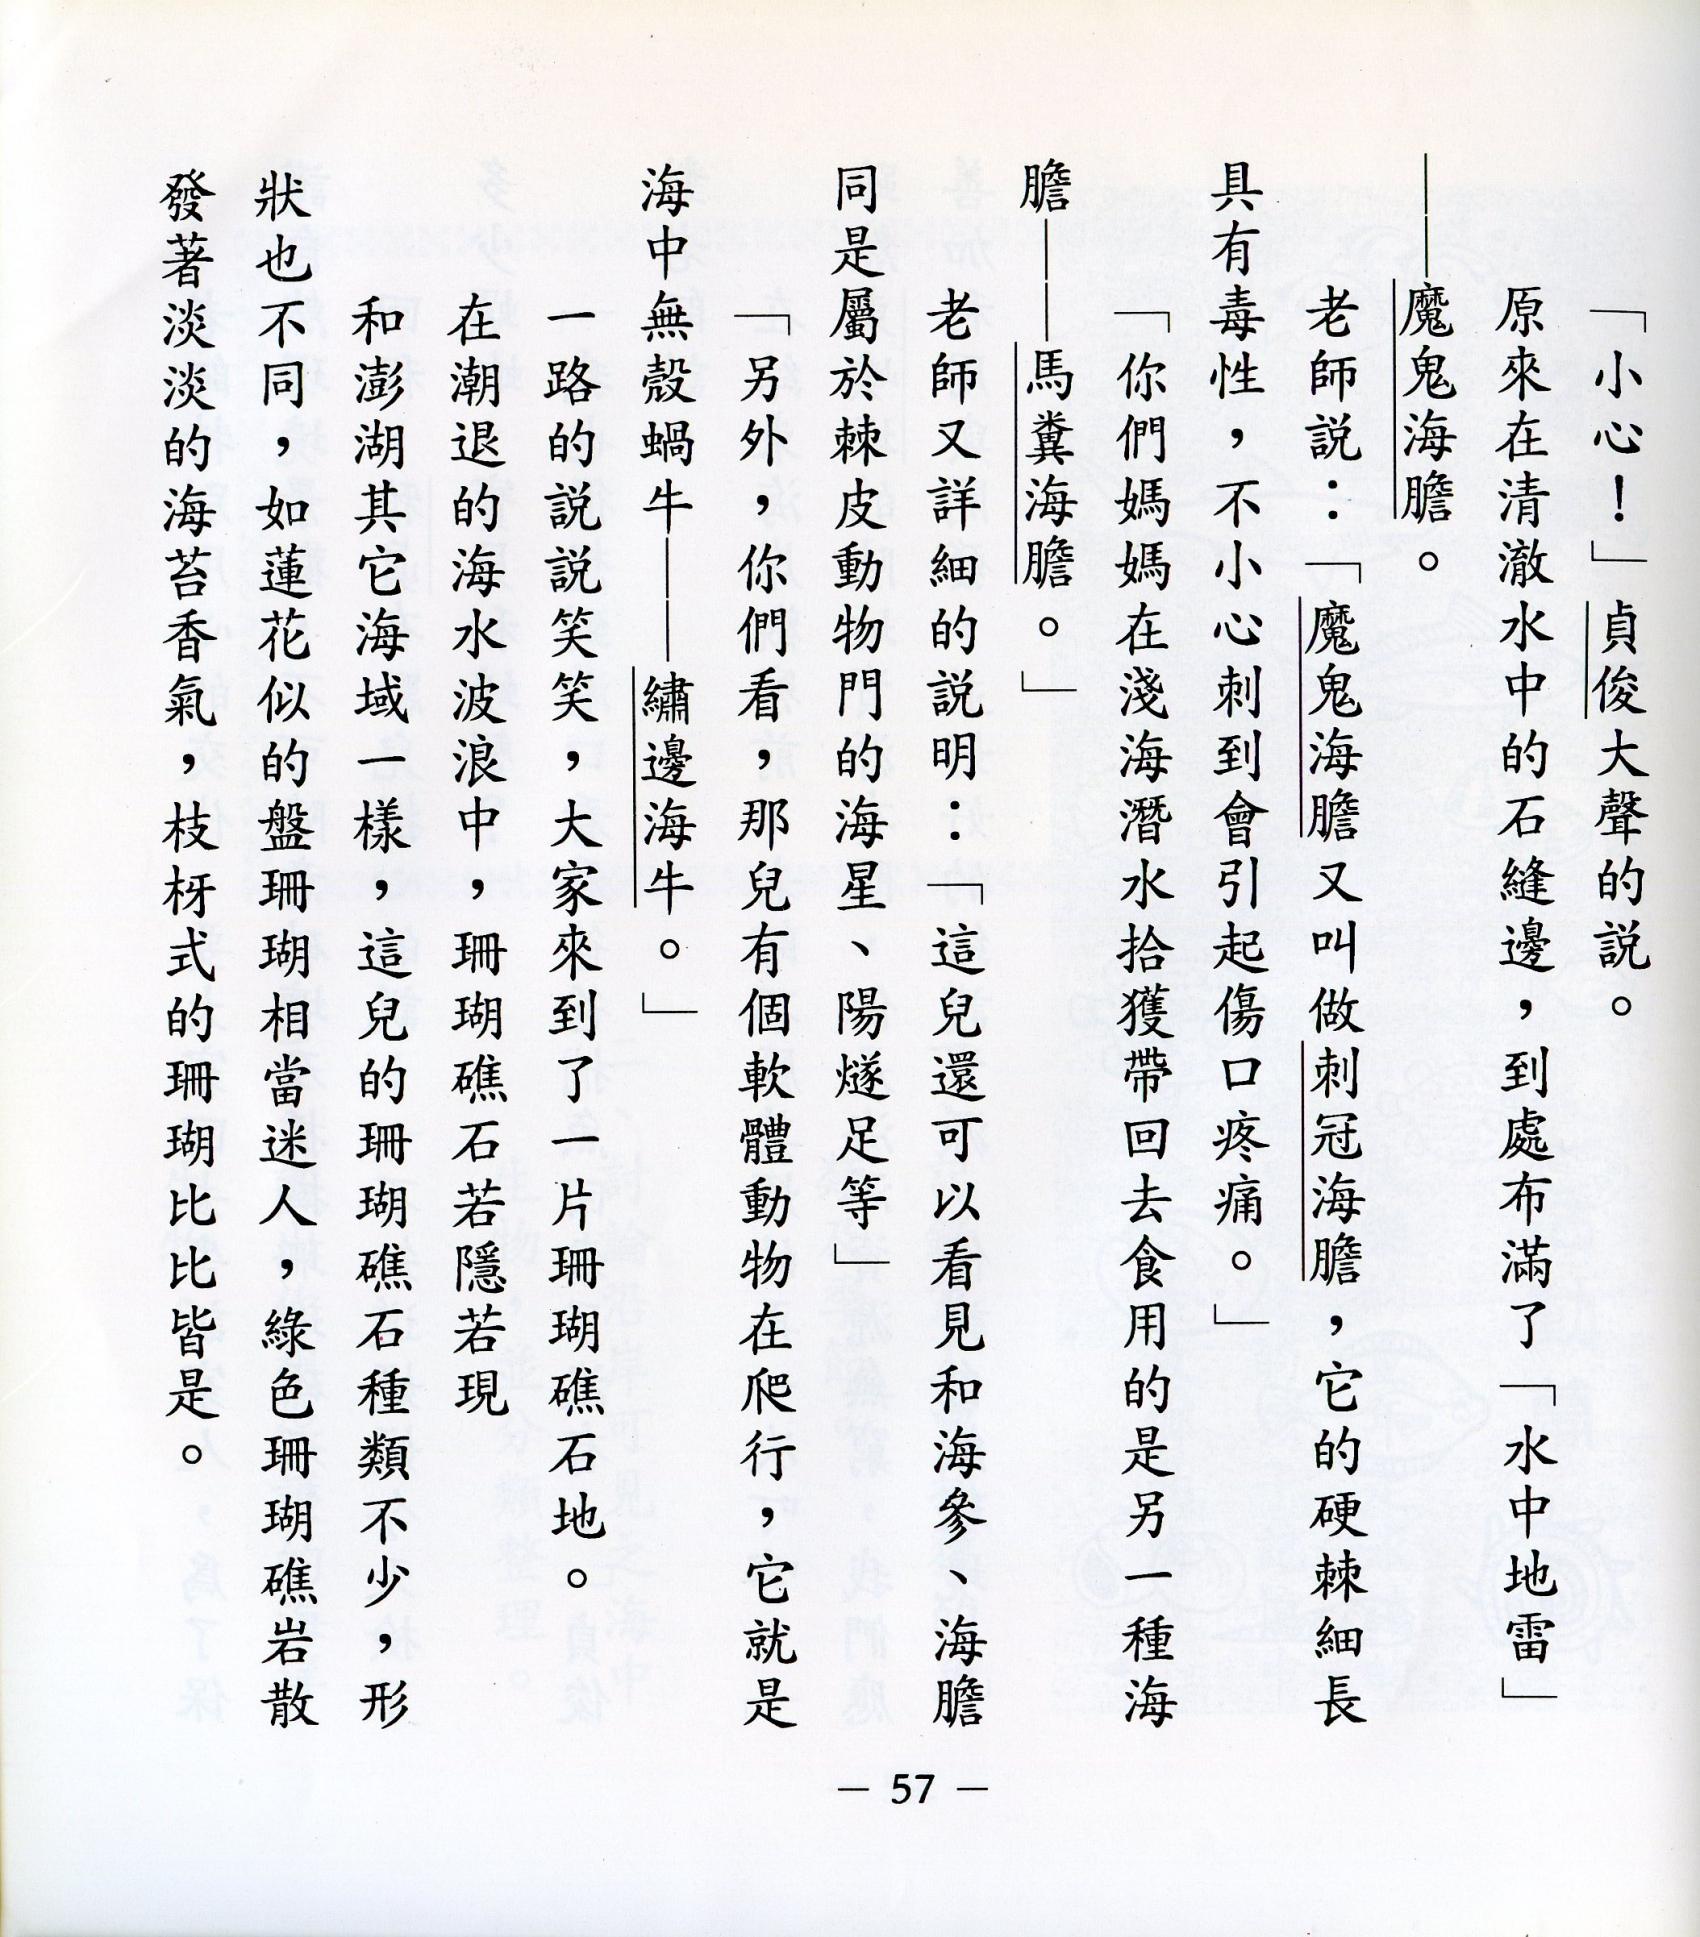 「小心！」貞俊大聲的説。
原來在清澈水中的石縫邊，到處布滿了「水中地雷」
——魔鬼海膽。
老師説：「魔鬼海膽又叫做刺冠海膽，它的硬棘細長
具有毒性，不小心刺到會引起傷口疼痛。」
「你們媽媽在淺海潛水拾獲帶回去食用的是另一種海
膽——馬糞海膽。」
老師又詳細的説明：「這兒還可以看見和海參、海膽
同是屬於棘皮動物門的海星、陽燧足等」
「另外，你們看，那兒有個軟體動物在爬行，它就是
海中無殼蝸牛——繡邊海牛。」
一路的説説笑笑，大家來到了一片珊瑚礁石地。
在潮退的海水波浪中，珊瑚礁石若隱若現
和澎湖其它海域一樣，這兒的珊瑚礁石種類不少，形
狀也不同，如蓮花似的盤珊瑚相當迷人，綠色珊瑚礁岩散
發著淡淡的海苔香氣，枝枒式的珊瑚比比皆是。
— 57 —